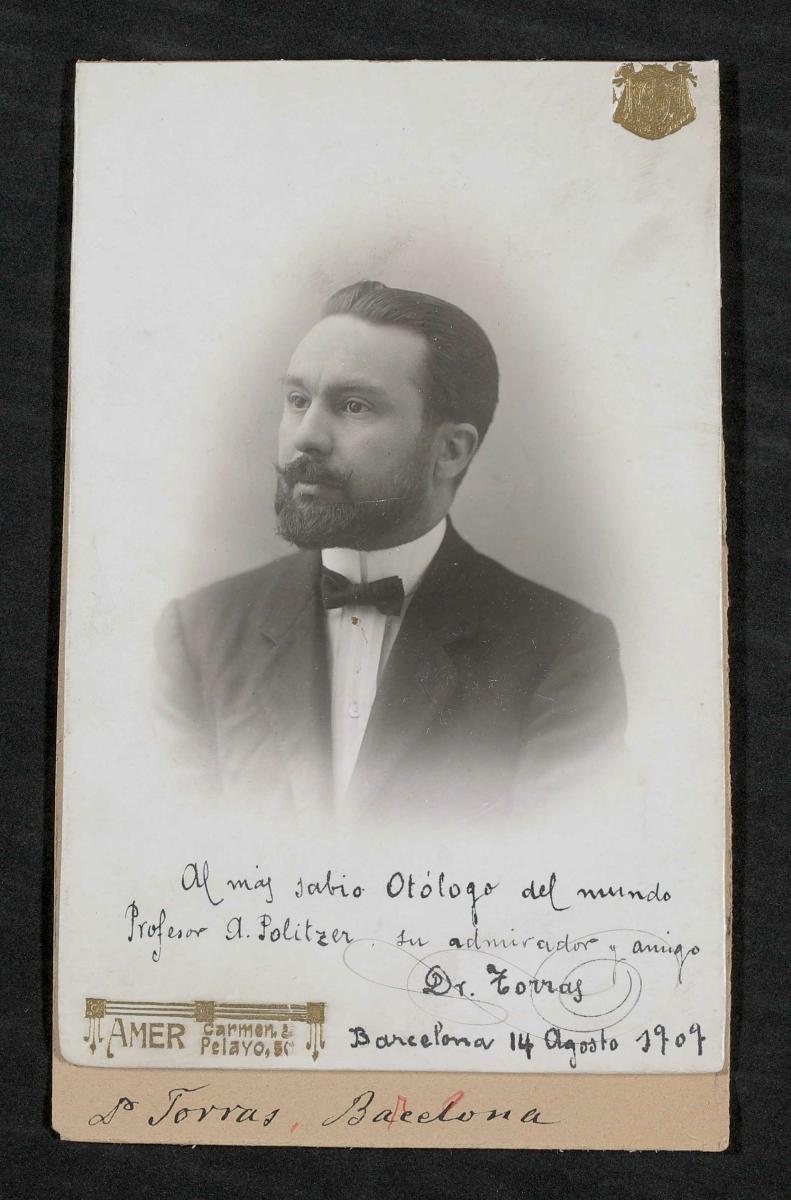 Al más sabio Otólogo del mundo
Profesor A. Politzer, su admirador y amigo
Dr. Torras
AMER
Carmen,
Pelayo, 50
Barcelona 14 Agosto 1909
Dr Torras, Bacelona